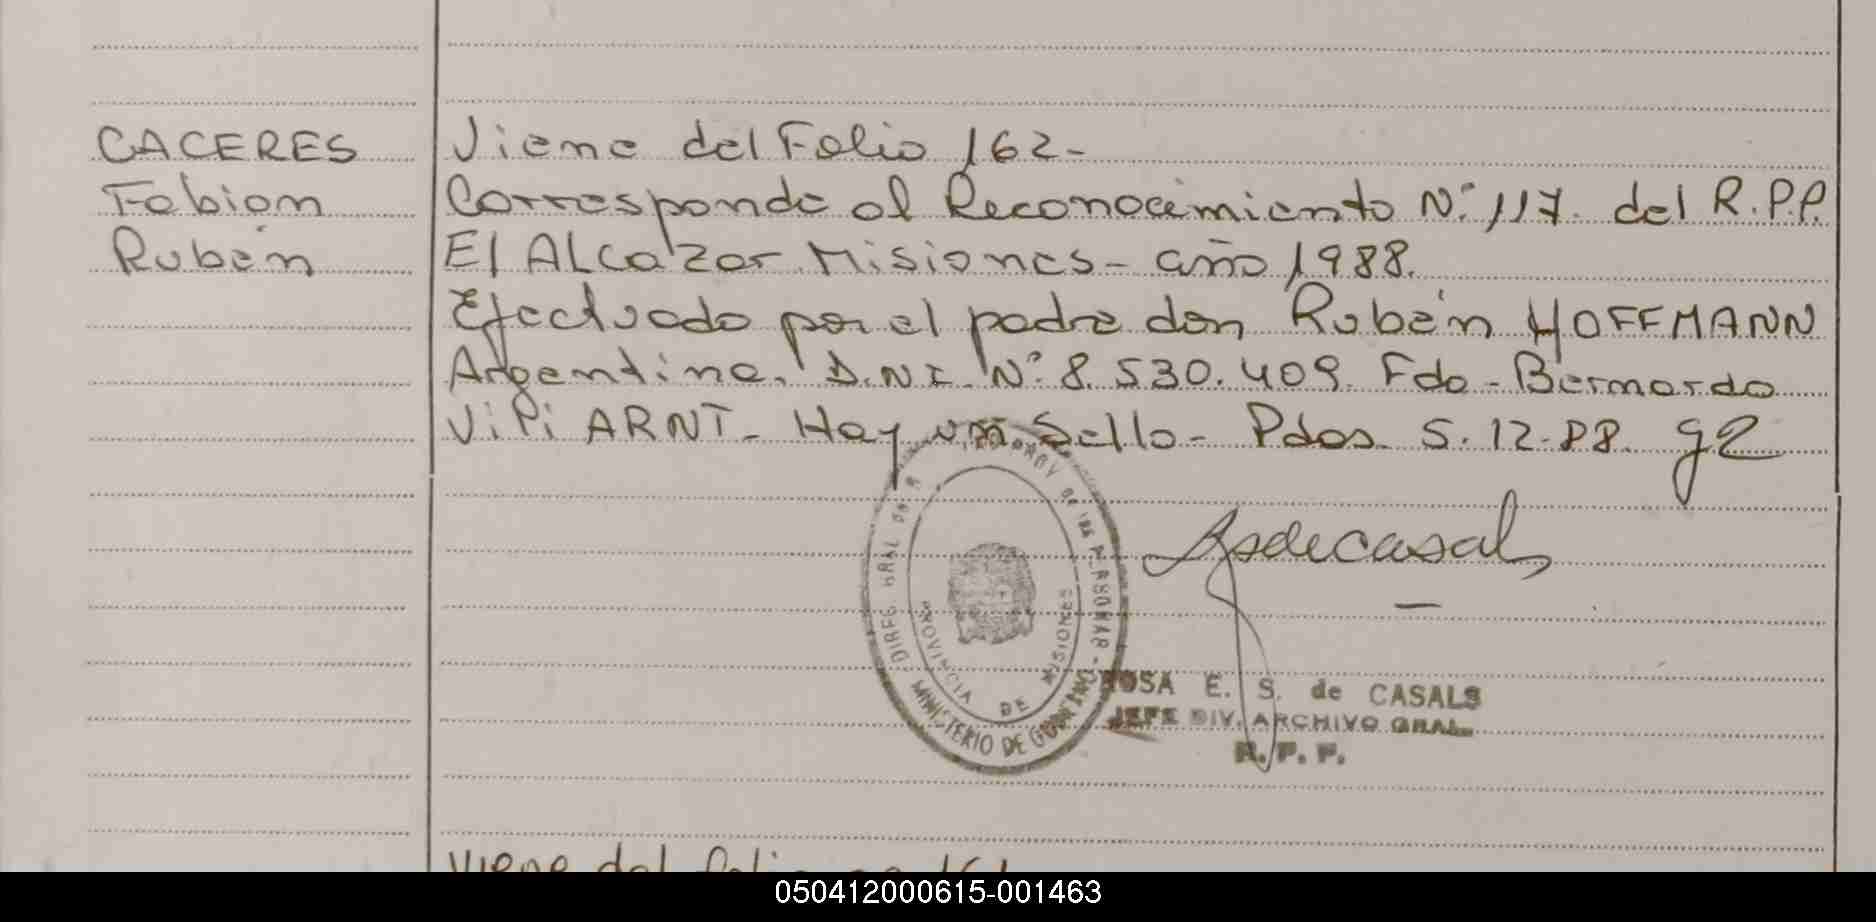 CACERES
Fabian
Rubén
Viene del Folio 162-
Corresponde al Reconocimiento N° 117 del R.P.P.
El ALcazar Misiones - año 1988.
Efectuado por el padre don Rubén HOFFMANN
Argentino. D.N.I. N° 8.530.409. Fdo - Bernardo
ViPi ARNT - Hay un Sello - Pdas. 5.12.88.
DIREC GRAL
PROV DE
MINISTERIO DE GOBIERNO
PROVINCIA DE MISIONES
ROSA E. S. de CASALS
JEFE DIV. ARCHIVO GRAL.
R. P. P.
Viene del folio
050412000615-001463